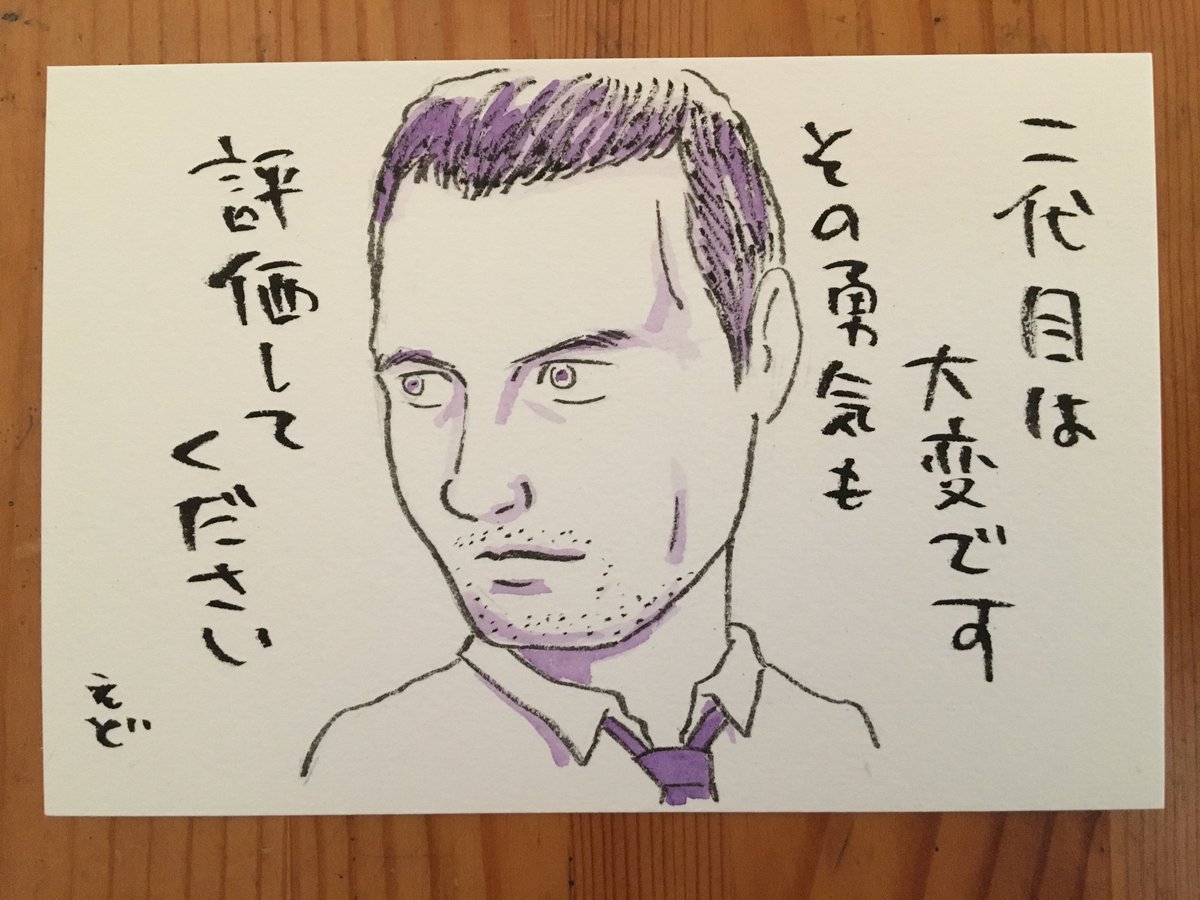 二代目は
大変です
その勇気も
評価して
ください
えど